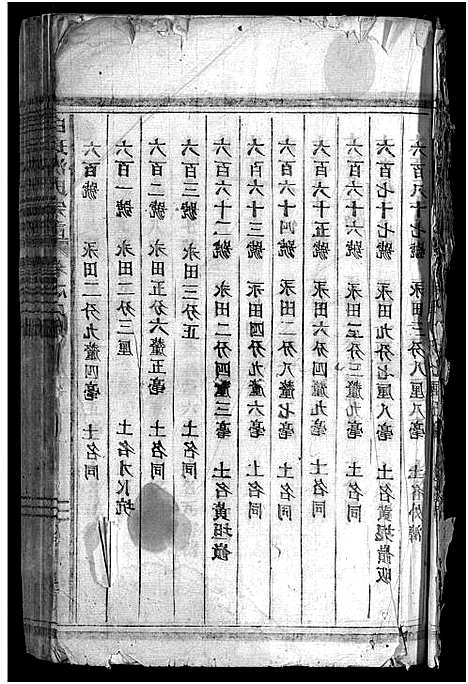 六百號 承田二分九釐四毫 土名同
六百一號 承田二分三厘 土名 坑
六百二號 承田五分六釐五毫 土名同
六百三號 承田三分正 土名同
六百六十二號 承田二分四釐三毫 土名黃坦嶺
六百六十三號 承田四分九釐六毫 土名同
六百六十四號 承田二分八釐七毫 土名同
六百六十五號 承田六分四釐九毫 土名同
六百六十六號 承田 分三釐九毫 土名同
六百七十七號 承田九分七厘八毫 土名黃 嶺畈
六百八十七號 承田三分八厘八毫 土名外